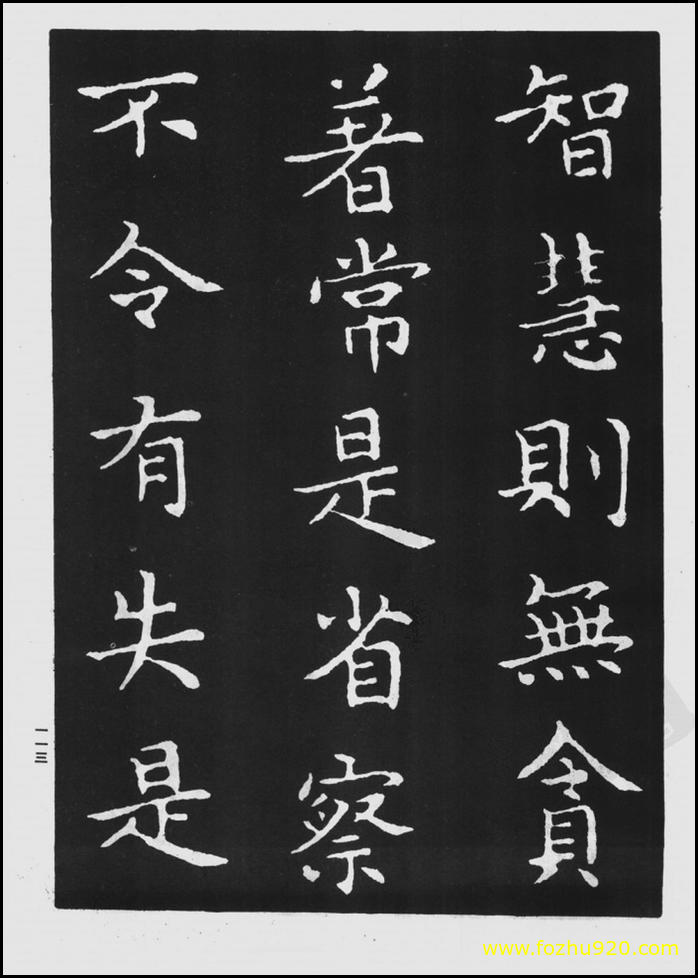 智慧則無貪
著常是省察
不令有失是
一一三
www.fozhu920.com